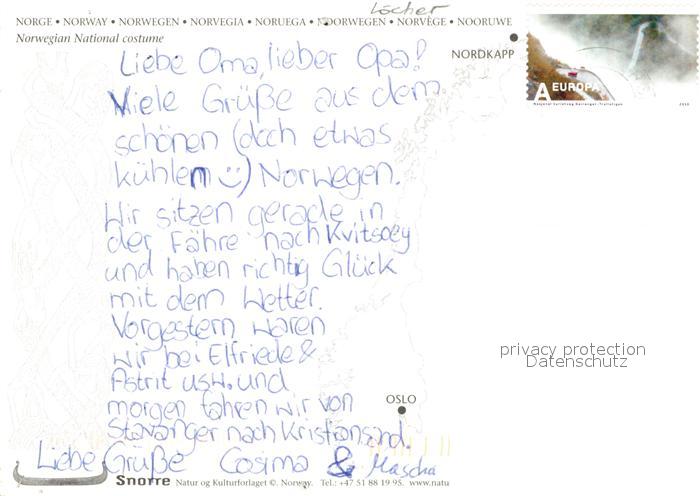 Löcher
NORGE • NORWAY • NORWEGEN • NORVEGIA • NORUEGA • NOORWEGEN • NORVÈGE • NOORUWE
Norwegian National costume
NORDKAPP
A EUROPA
2010
Liebe Oma, lieber Opa!
Viele Grüße aus dem
schönen (doch etwas
kühlem :-)) Norwegen.
Wir sitzen gerade in
der Fähre nach Kvitsoey
und haben richtig Glück
mit dem Wetter.
Vorgestern waren
wir bei Elfriede &
Astrit usw. und
morgen fahren wir von
Stavanger nach Kristiansand.
Liebe Grüße Cosima & Mascha
privacy protection
Datenschutz
OSLO
Snorre Natur og Kulturforlaget ©. Norway. Tel.: +47 51 88 19 95. www.natu